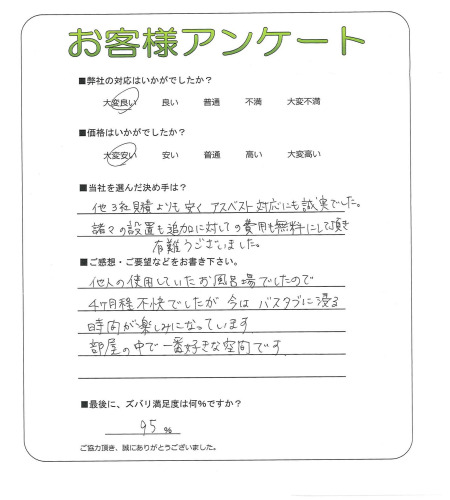 お客様アンケート
■弊社の対応はいかがでしたか？
大変良い 良い 普通 不満 大変不満
■価格はいかがでしたか？
大変安い 安い 普通 高い 大変高い
■当社を選んだ決め手は？
他3社見積よりも安く アスベスト対応にも誠実でした。
諸々の設置も追加に対しての費用も無料にして頂き
有難うございました。
■ご感想・ご要望などをお書き下さい。
他人の使用していたお風呂場でしたので
4ヶ月程不快でしたが 今は バスタブに浸る
時間が楽しみになっています
部屋の中で一番好きな空間です
■最後に、ズバリ満足度は何％ですか？
95 ％
ご協力頂き、誠にありがとうございました。